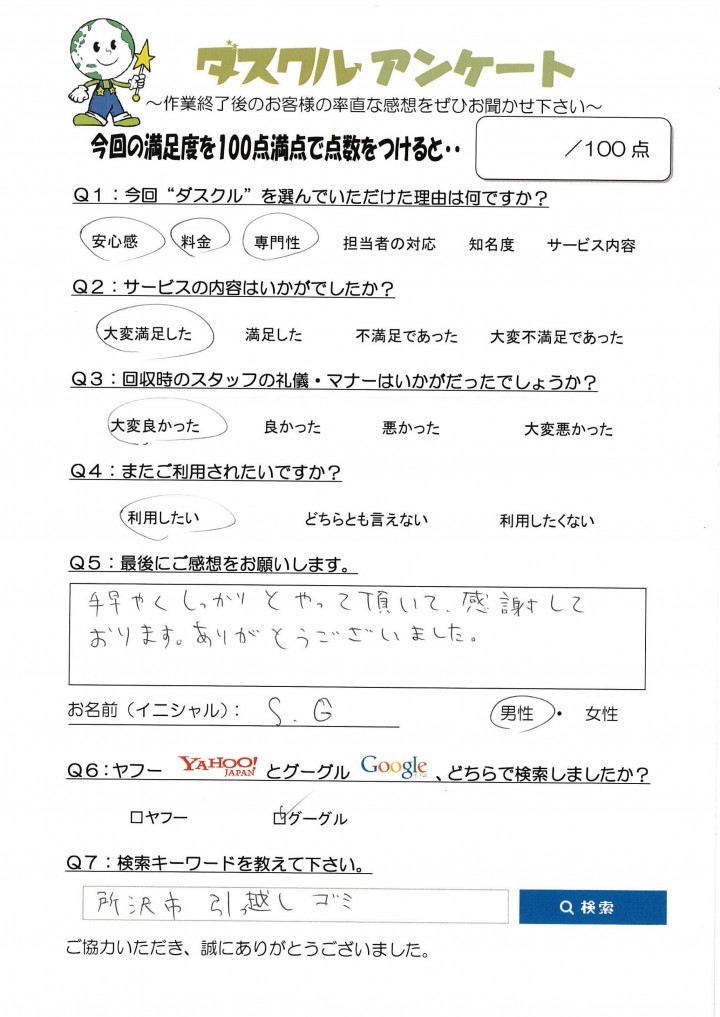 ダスクルアンケート
～作業終了後のお客様の率直な感想をぜひお聞かせ下さい～
今回の満足度を100点満点で点数をつけると‥ ／100点
Q1：今回“ダスクル”を選んでいただけた理由は何ですか？
安心感 料金 専門性 担当者の対応 知名度 サービス内容
Q2：サービスの内容はいかがでしたか？
大変満足した 満足した 不満足であった 大変不満足であった
Q3：回収時のスタッフの礼儀・マナーはいかがだったでしょうか？
大変良かった 良かった 悪かった 大変悪かった
Q4：またご利用されたいですか？
利用したい どちらとも言えない 利用したくない
Q5：最後にご感想をお願いします。
手早くしっかりとやって頂いて、感謝して
おります。ありがとうございました。
お名前（イニシャル）： S.G 男性・女性
Q6：ヤフー YAHOO! JAPAN とグーグル Google 、どちらで検索しましたか？
□ヤフー □グーグル
Q7：検索キーワードを教えて下さい。
所沢市 引っ越し ゴミ 検索
ご協力いただき、誠にありがとうございました。